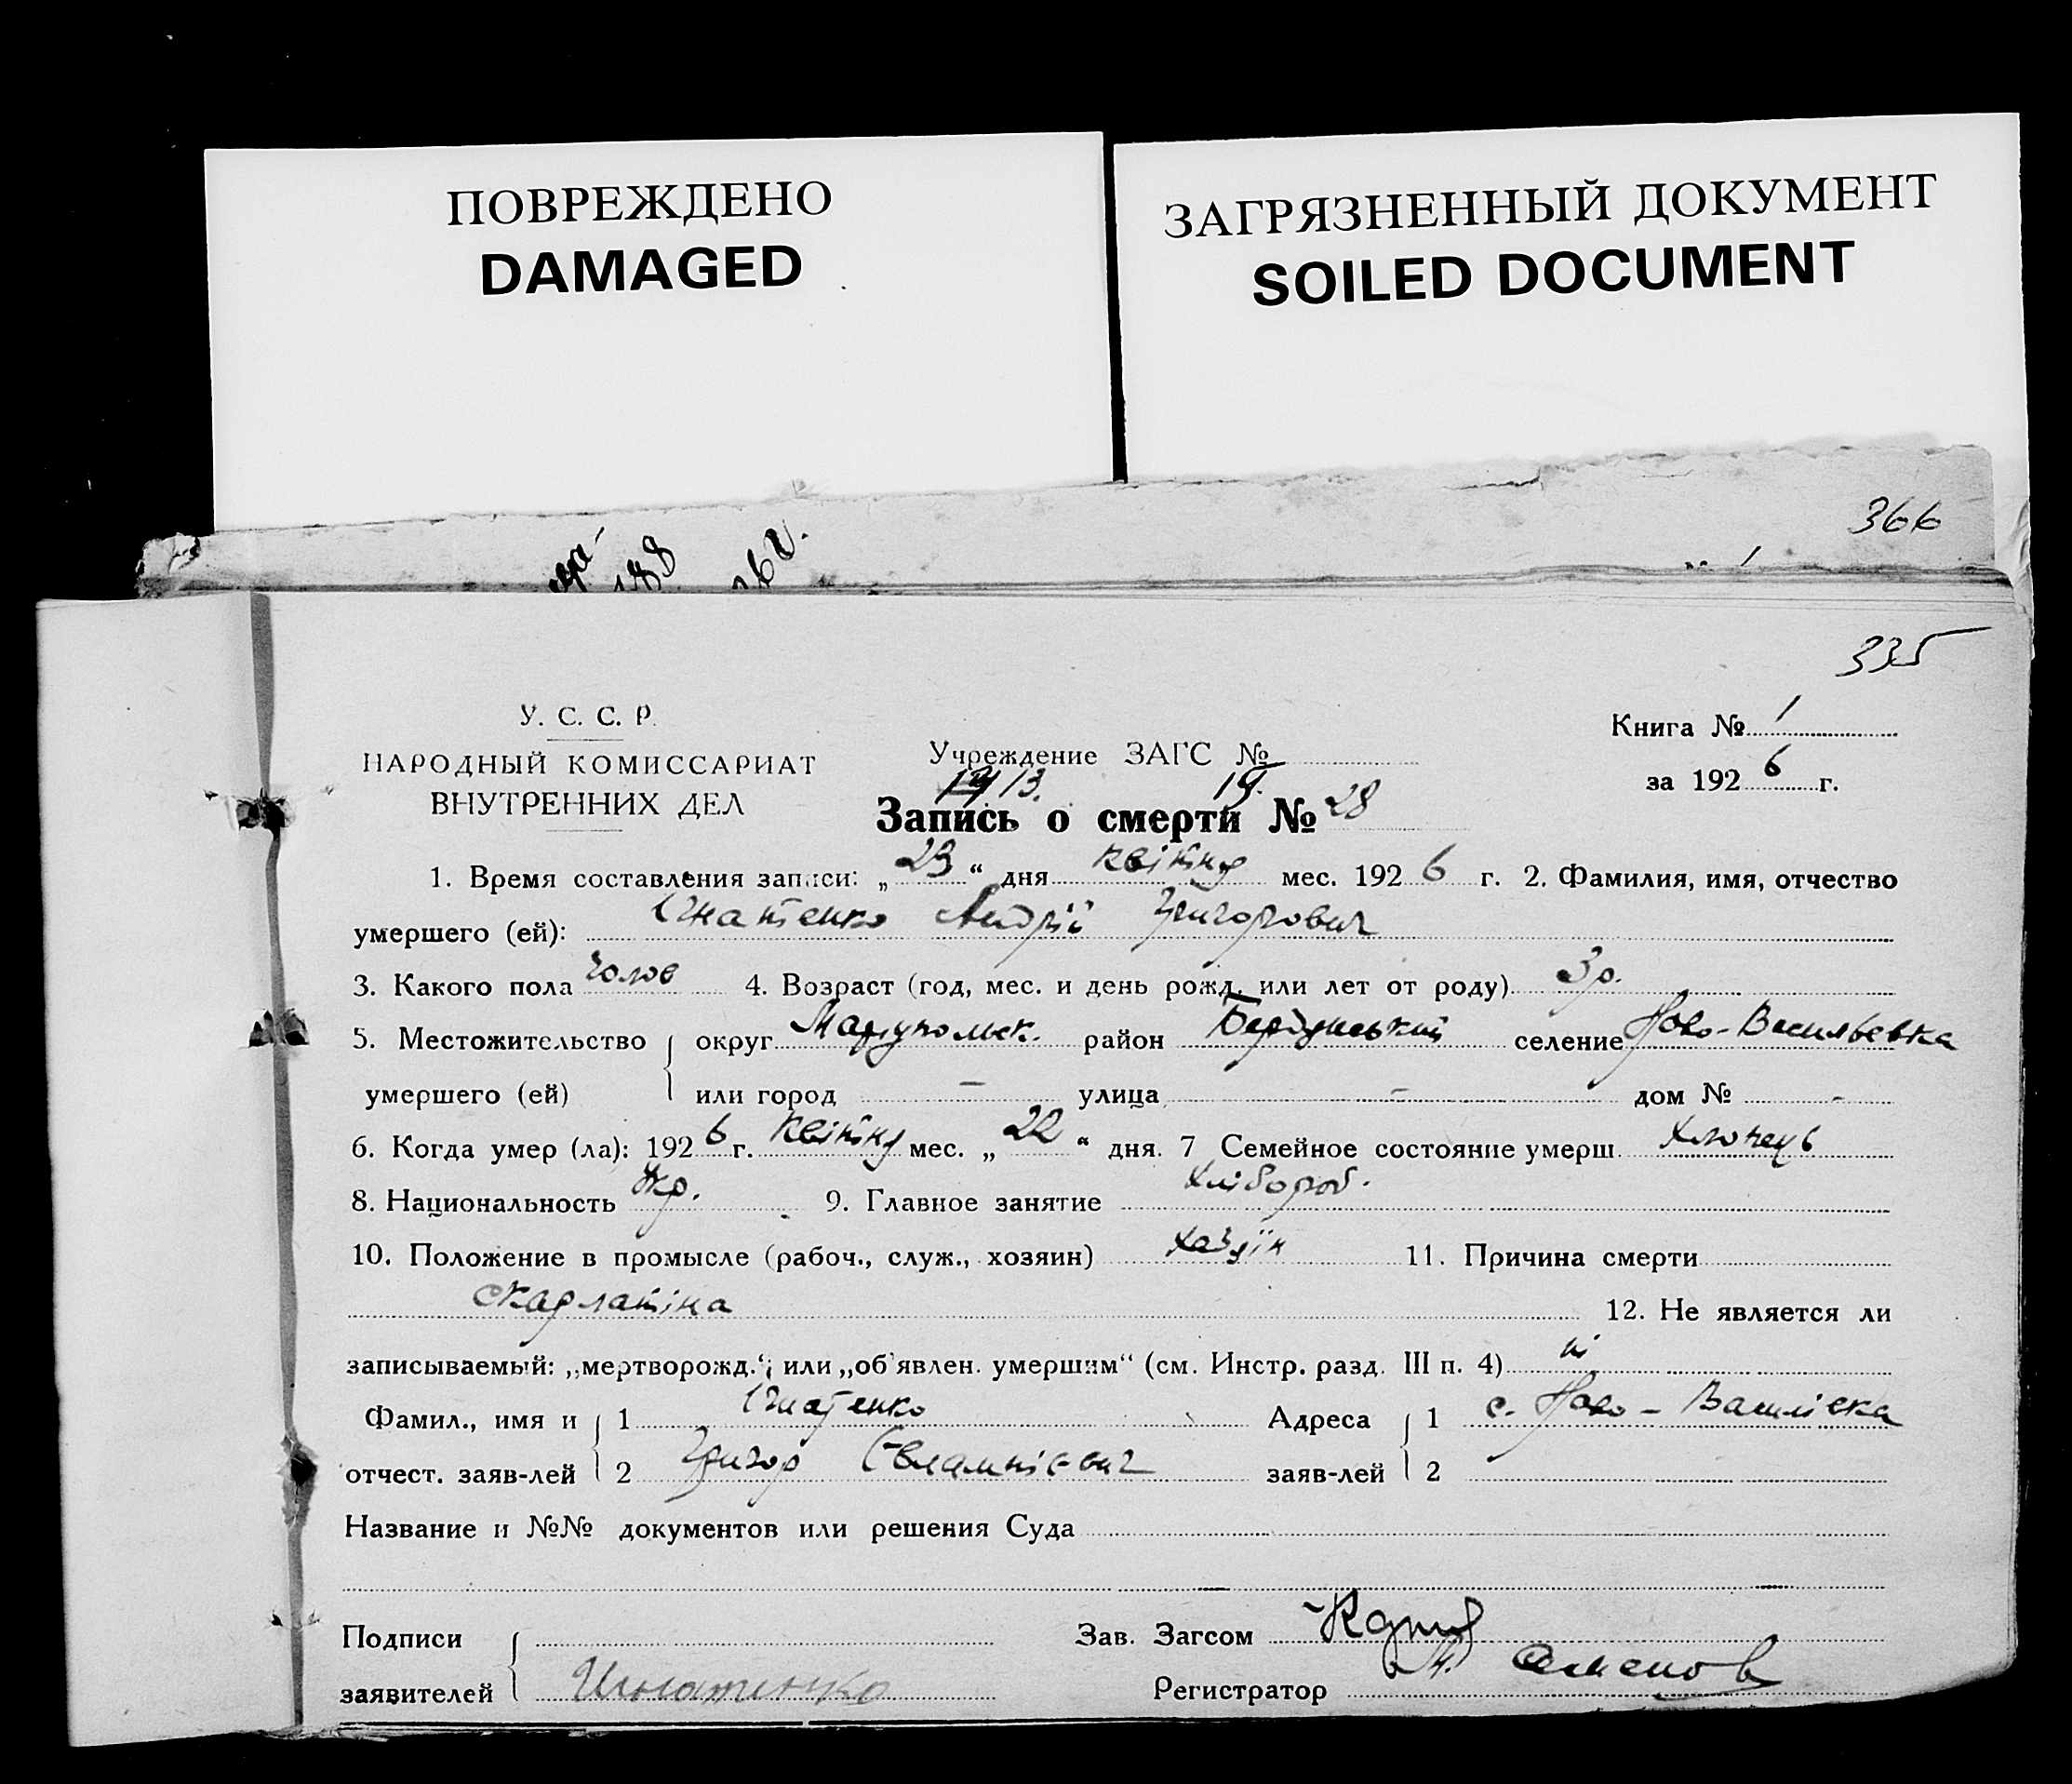 ПОВРЕЖДЕНО
DAMAGED
ЗАГРЯЗНЕННЫЙ ДОКУМЕНТ
SOILED DOCUMENT
366
188
335
У. С. С. Р.
НАРОДНЫЙ КОМИССАРИАТ
ВНУТРЕННИХ ДЕЛ
Учреждение ЗАГС №
Книга № 1
за 1926 г.
13. 19.
Запись о смерти № 28
1. Время составления записи: „23“ дня квітня мес. 1926 г. 2. Фамилия, имя, отчество
умершего (ей): Ігнатенко Андрій Григорович
3. Какого пола чолов 4. Возраст (год, мес. и день рожд. или лет от роду) 3 р.
5. Местожительство округ Маріупольск. район Бердянський селение Ново-Васильевка
умершего (ей) или город – улица – дом № -
6. Когда умер (ла): 1926 г. квітня мес. „22“ дня. 7 Семейное состояние умерш. хлопець
8. Национальность Укр. 9. Главное занятие хлібороб.
10. Положение в промысле (рабоч., служ., хозяин) хазяїн 11. Причина смерти
скарлатіна 12. Не является ли
записываемый: „мертворожд.“, или „об'явлен. умершим“ (см. Инстр. разд. III п. 4) ні
Фамил., имя и 1 Ігнатенко Адреса 1 с. Ново-Василівка
отчест. заяв-лей 2 Григор Євлампієвич заяв-лей 2
Название и №№ документов или решения Суда
Подписи Зав. Загсом
заявителей Игнатенко Регистратор